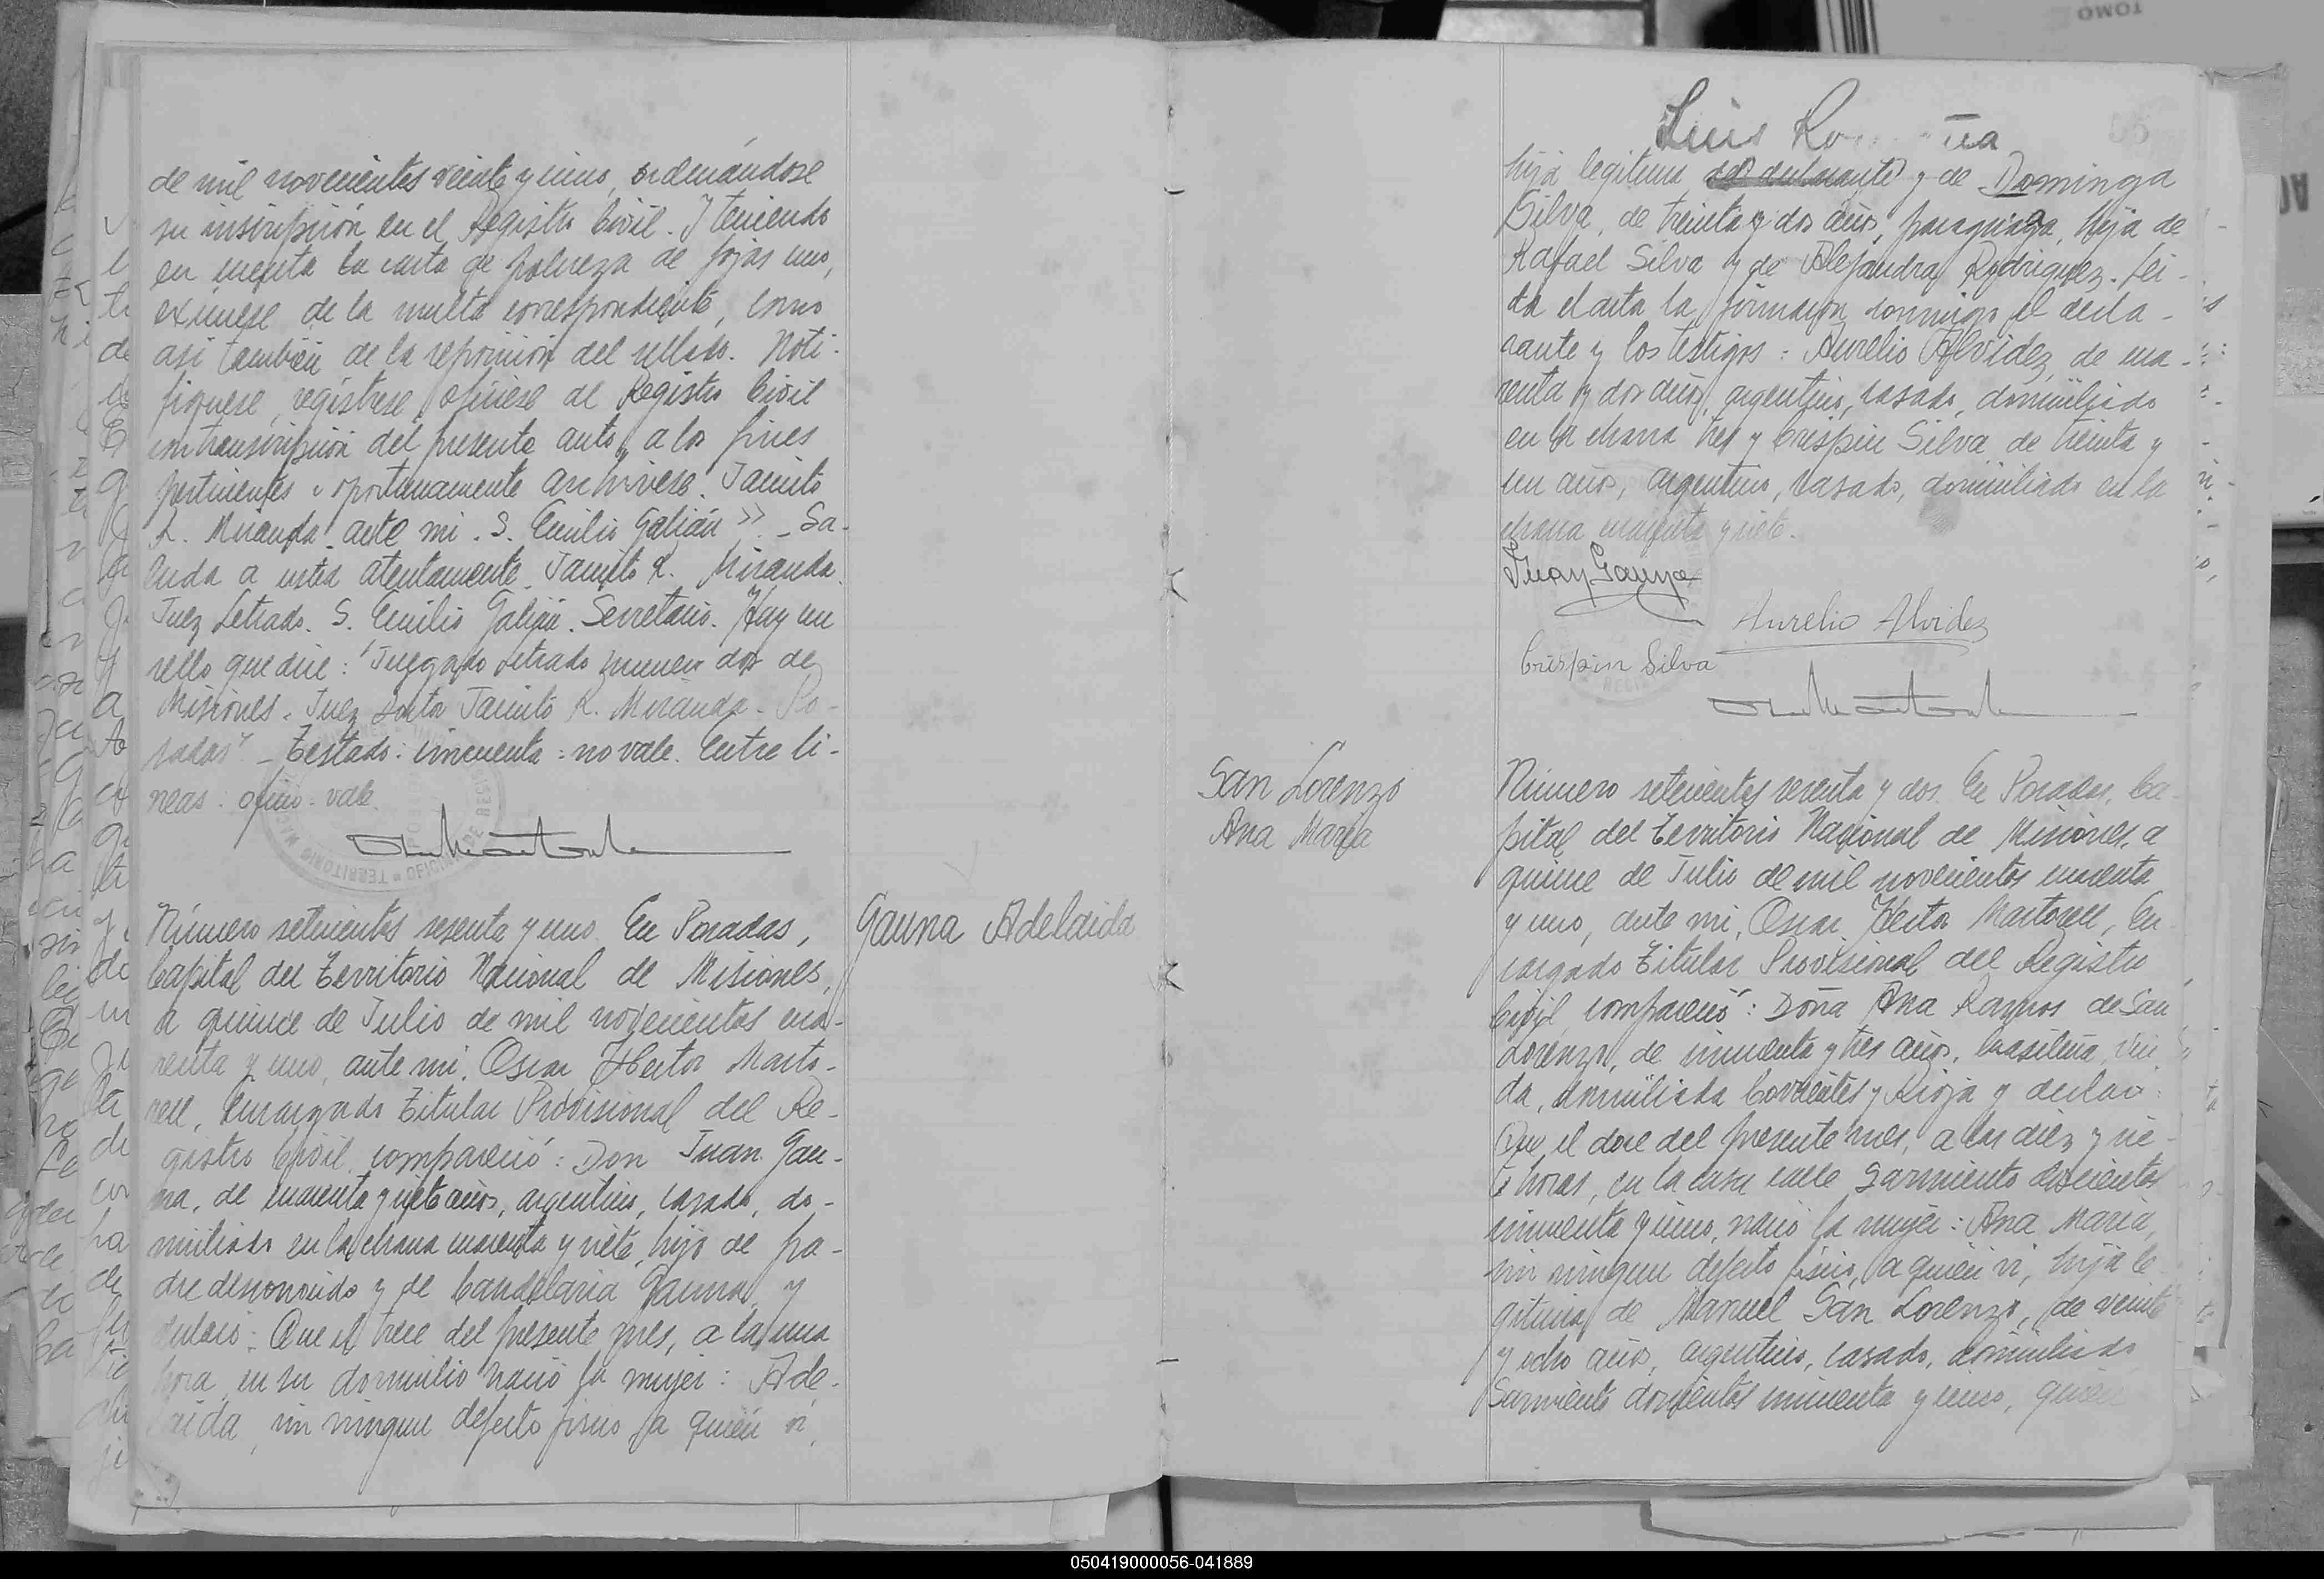 de mil novecientos veinte y uno, ordenándose
su inscripción en el Registro Civil. Y teniendo
en cuenta la carta de pobreza de fojas uno,
exímese de la multa correspondiente, como
asi también de la reposición del sellado. Noti-
fíquese, regístrese, ofíciese al Registro Civil
con transcripción del presente auto, a los fines
pertinentes y oportunamente archívese. Jacinto
R. Miranda. ante mi. S. Emilio Galián >>. - Sa-
luda a usted atentamente. Jacinto R. Miranda.
Juez Letrado. S. Emilio Galián. Secretario. Hay un
sello que dice: "Juzgado Letrado número dos de
Misiones. Juez doctor Jacinto R. Miranda. Po-
sadas". - Testado: cincuenta: no vale. Entre li-
neas: vale.
Número setecientos sesenta y uno. En Posadas,
Capital del Territorio Nacional de Misiones,
a quince de Julio de mil novecientos cua-
renta y uno, ante mi, Oscar Hector Marto-
rell, Encargado Titular Provisional del Re-
gistro Civil, compareció: Don Juan Gau-
na, de cuarenta y siete años, argentino, casado, do-
miciliado en la chacra cuarenta y siete, hijo de pa-
dre desconocido y de Candelaria Gauna, y
declaró: Que el trece del presente mes, a la una
hora, en su domicilio nació la mujer: Ade-
laida, sin ningun defecto fisico, a quién ví,
Gauna Adelaida
Luis
hija legitima del declarante y de Dominga
Silva, de treinta y dos años, paraguaya, hija de
Rafael Silva y de Alejandra Rodriguez. Lei-
da el acta la firmaron conmigo el decla-
rante y los testigos: Aurelio Alvidez, de cua-
renta y dos años, argentino, casado, domiciliado
en la chacra tres y Crispin Silva, de treinta y
un años, argentino, casado, domiciliado en la
chacra cuarenta y siete.
Juan Gauna
Aurelio Alvidez
Crispin Silva
San Lorenzo
Ana Maria
Número setecientos sesenta y dos. En Posadas, Ca-
pital del Territorio Nacional de Misiones, a
quince de Julio de mil novecientos cuarenta
y uno, ante mi, Oscar Hector Martorell, En-
cargado Titular Provisional del Registro
Civil, compareció: Doña Ana Ramos de San
Lorenzo, de cincuenta y tres años, brasileña, viu-
da, domiciliada Corrientes y Rioja y declaró:
Que el doce del presente mes, a las diez y sie-
te horas, en la casa calle Sarmiento doscientos
cincuenta y cinco, nació la mujer: Ana Maria,
sin ningun defecto fisico, a quién ví, hija le-
gitima de Manuel San Lorenzo, de veinte
y ocho años, argentino, casado, domiciliado
Sarmiento doscientos cincuenta y cinco, quien
050419000056-041889